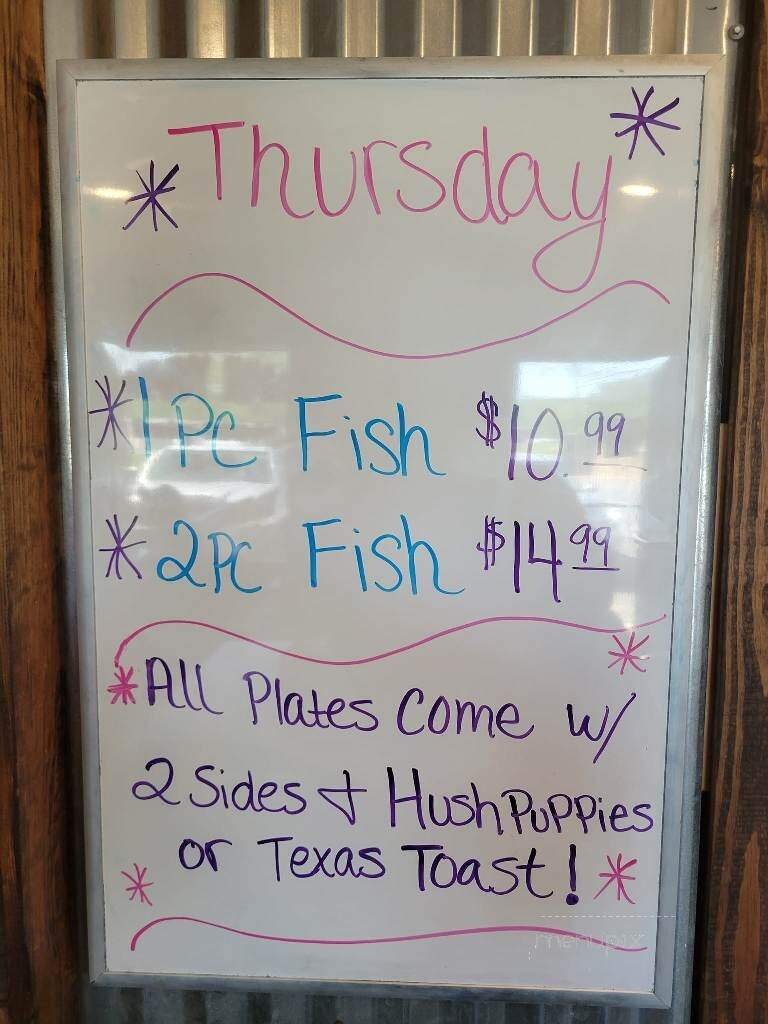 Thursday
1 PC Fish $10.99
2 PC Fish $14 99
All Plates Come w/
2 Sides + Hush Puppies
or Texas Toast!
menupix